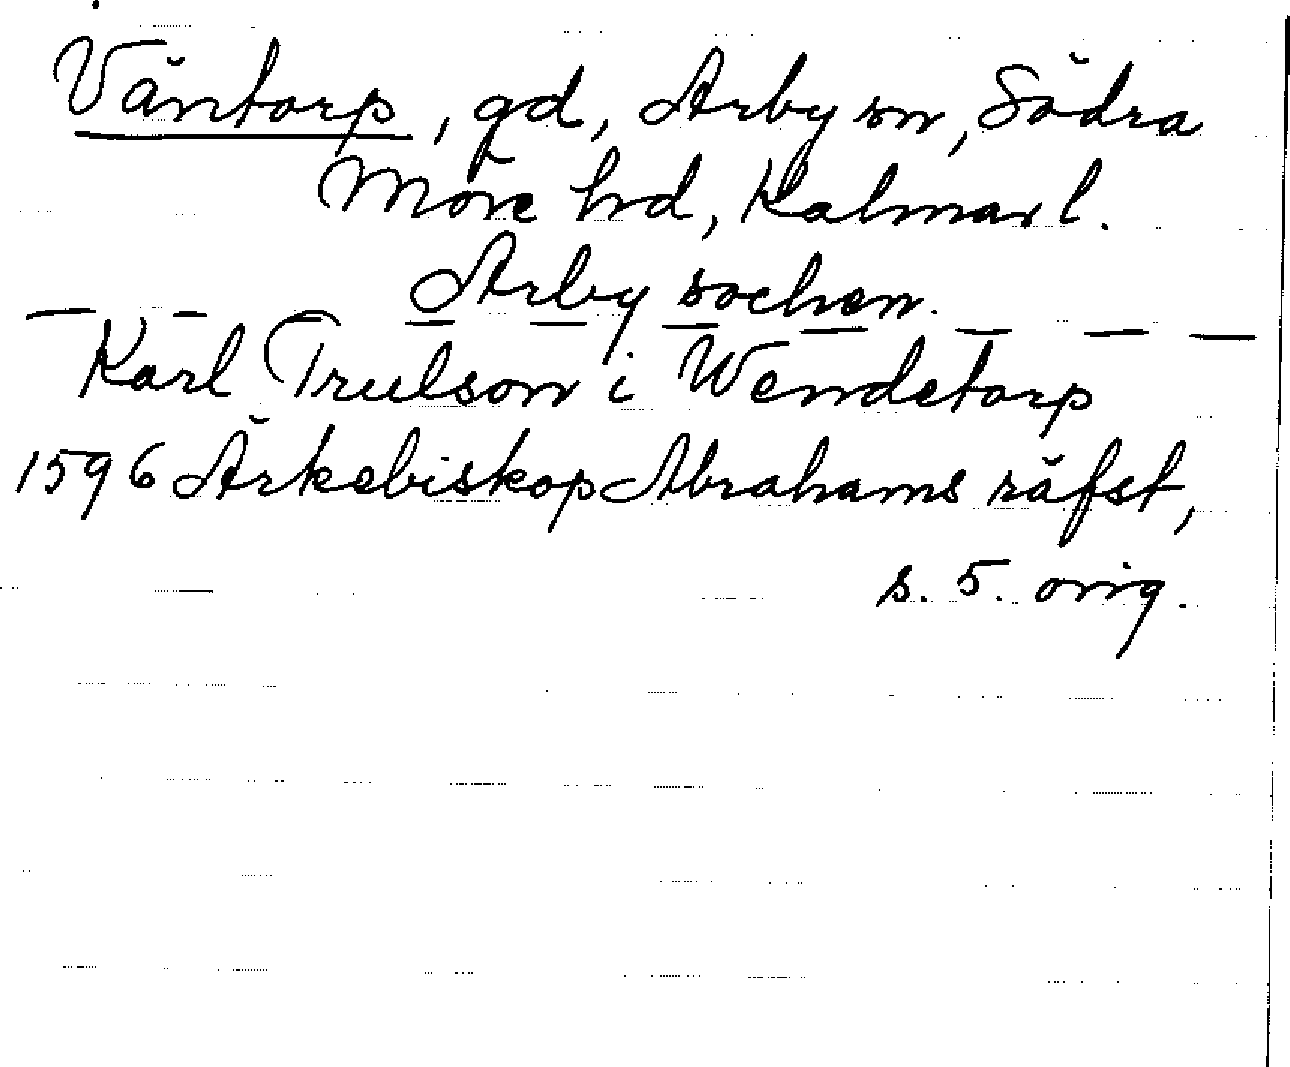 Väntorp, gd, Arby sn, Södra
Möre hd, Kalmar l.
Arby sochen.
Karl Trulson i Wendetorp
1596 Ärkebiskop Abrahams räfst,
s. 5. orig.